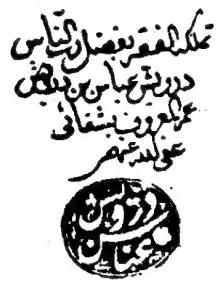 تملكه الفقير بفضل رب الناس
درويش عباس بن درويش
عمر المعروف بشفائي
عفى الله عنهم
درويش
عباس